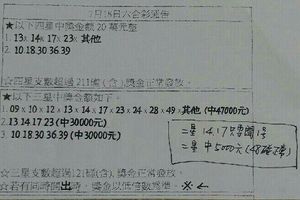 7月18日六合彩通告
★以下四星中獎金額20萬元整
1. 13x 14x 17x 23x 其他
2. 10.18.30.36.39
☆四星支數超過211碰(含),獎金正常發放。
★以下三星中獎金額如下。
1. 09x 10x 12x 13x 14x 17x 23x 24x 28x 49x 其他 (中47000元)
2. 13 14 17 23 (中30000元)
3. 10 18 30 36 39 (中30000元)
二星 14.17只
二星 中5000元
☆三星支數超過121碰(含),獎金正常發放。
☆若有同時開出時,獎金以低倍數為準。